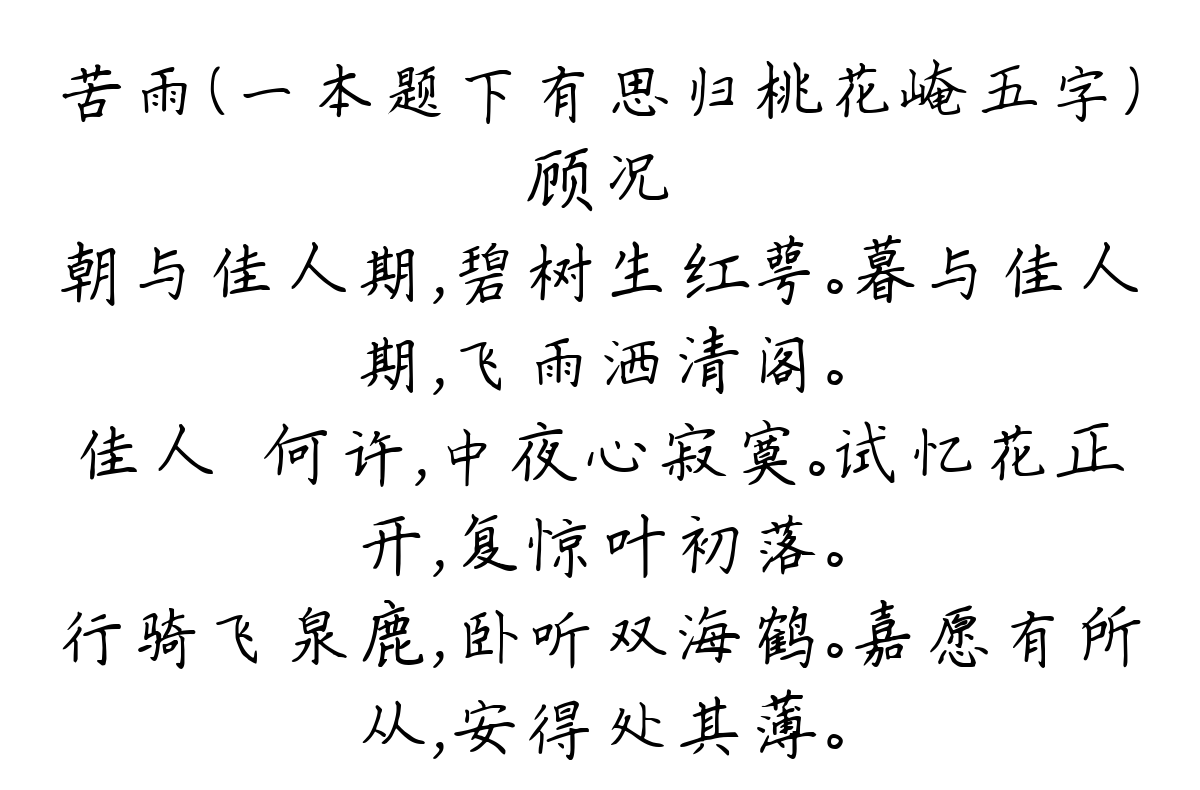 苦雨(一本题下有思归桃花崦五字)
顾况
朝与佳人期,碧树生红萼。暮与佳人
期,飞雨洒清阁。
佳人 何许,中夜心寂寞。试忆花正
开,复惊叶初落。
行骑飞泉鹿,卧听双海鹤。嘉愿有所
从,安得处其薄。